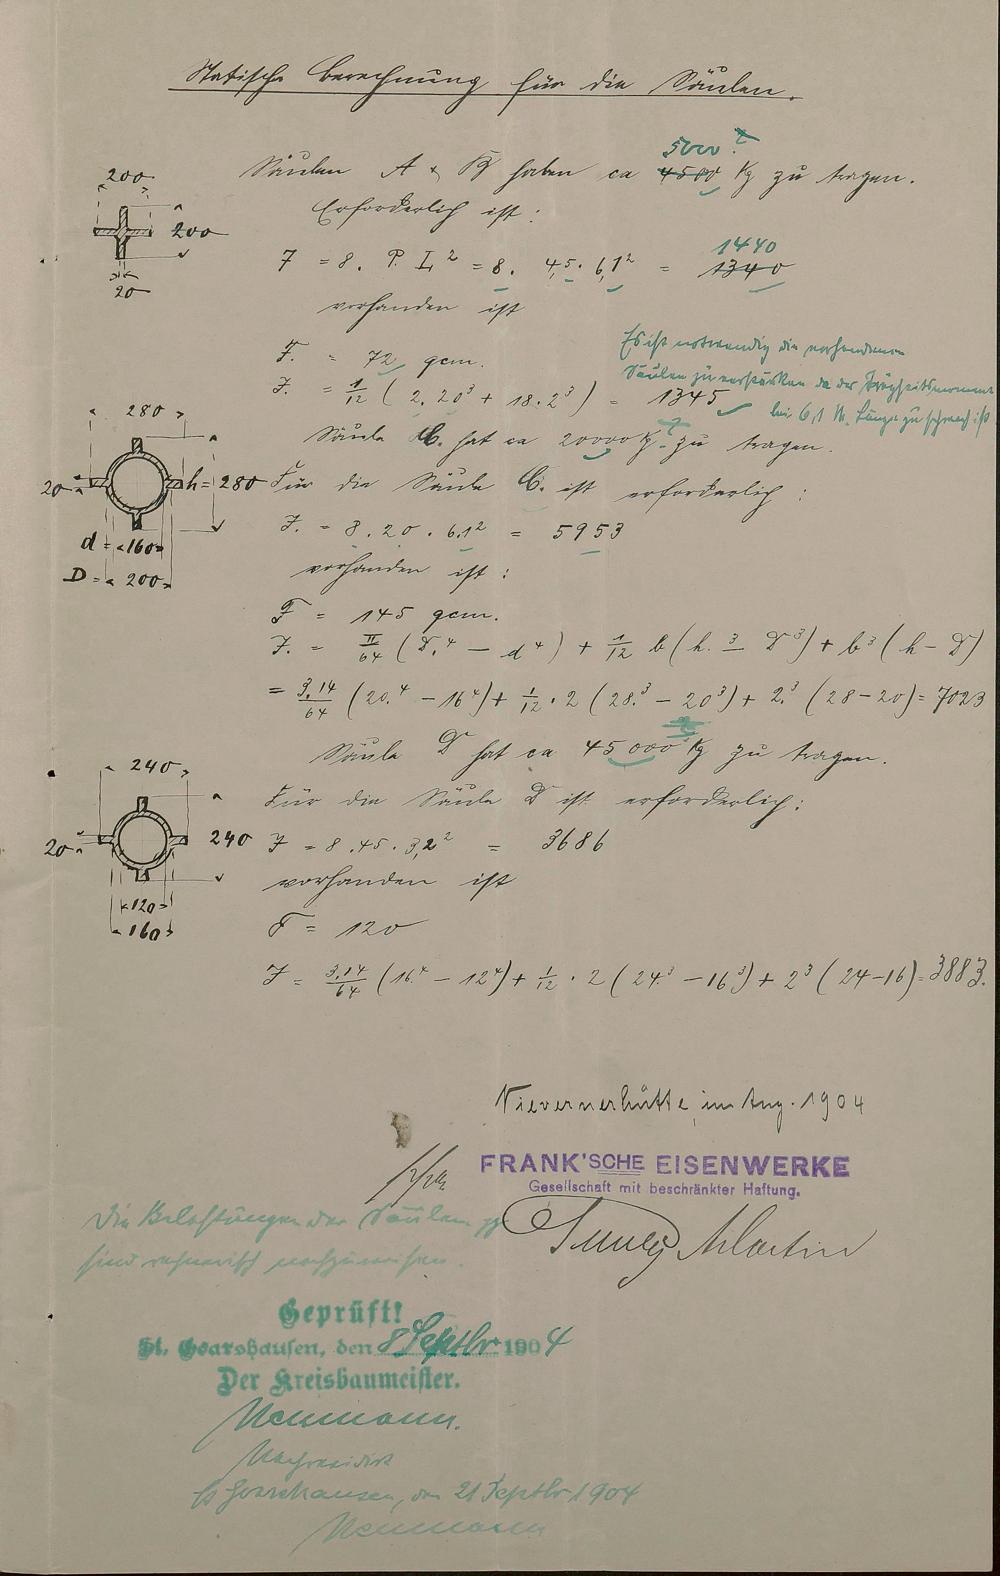 Statische Berechnung für die Säulen.
5000 ?
Säulen A & B haben ca 4500 Kg zu tragen.
200
200
20
Erforderlich ist:
1440
J = 8. P. L² = 8. 4,5. 6,1² = 1340
vorhanden ist
F. = 72 qcm.
Es ist notwendig die vorhandenen
Säulen zu verstärken da das Trägheitsmoment
bei 6,1 M. Länge zu schwach ist
J. = 1/12 ( 2. 20³ + 18. 2³ ) = 1345
280
h = 280
20
d = 160
D = 200
Säule C. hat ca 20000 Kg. zu tragen.
Für die Säule C. ist erforderlich:
J. = 8. 20. 6.1² = 5953
vorhanden ist:
F = 145 qcm.
J. = π/64 (D.⁴ – d⁴) + 1/12 b (h.³ – D³) + b³ (h – D)
= 3.14/64 (20.⁴ – 16⁴) + 1/12 . 2 (28.³ – 20³) + 2.³ (28 – 20) = 7023
Säule D hat ca 45000 Kg zu tragen.
240
240
20
120
160
Für die Säule D ist erforderlich:
J = 8. 45. 3,2² = 3686
vorhanden ist
F = 120
J = 3.14/64 (16.⁴ – 12⁴) + 1/12 . 2 (24.³ – 16³) + 2³ (24 – 16) = 3883.
Nievernerhütte, im Aug. 1904
FRANK'SCHE EISENWERKE
Gesellschaft mit beschränkter Haftung.
ppa
Martin
Die Belastungen der Säulen pp
sind rechnerisch nachzuweisen.
Geprüft!
St. Goarshausen, den 8 Septbr 1904
Der Kreisbaumeister.
Neumann.
Nachrevidirt
St Goarshausen, den 21 Septbr 1904
Neumann